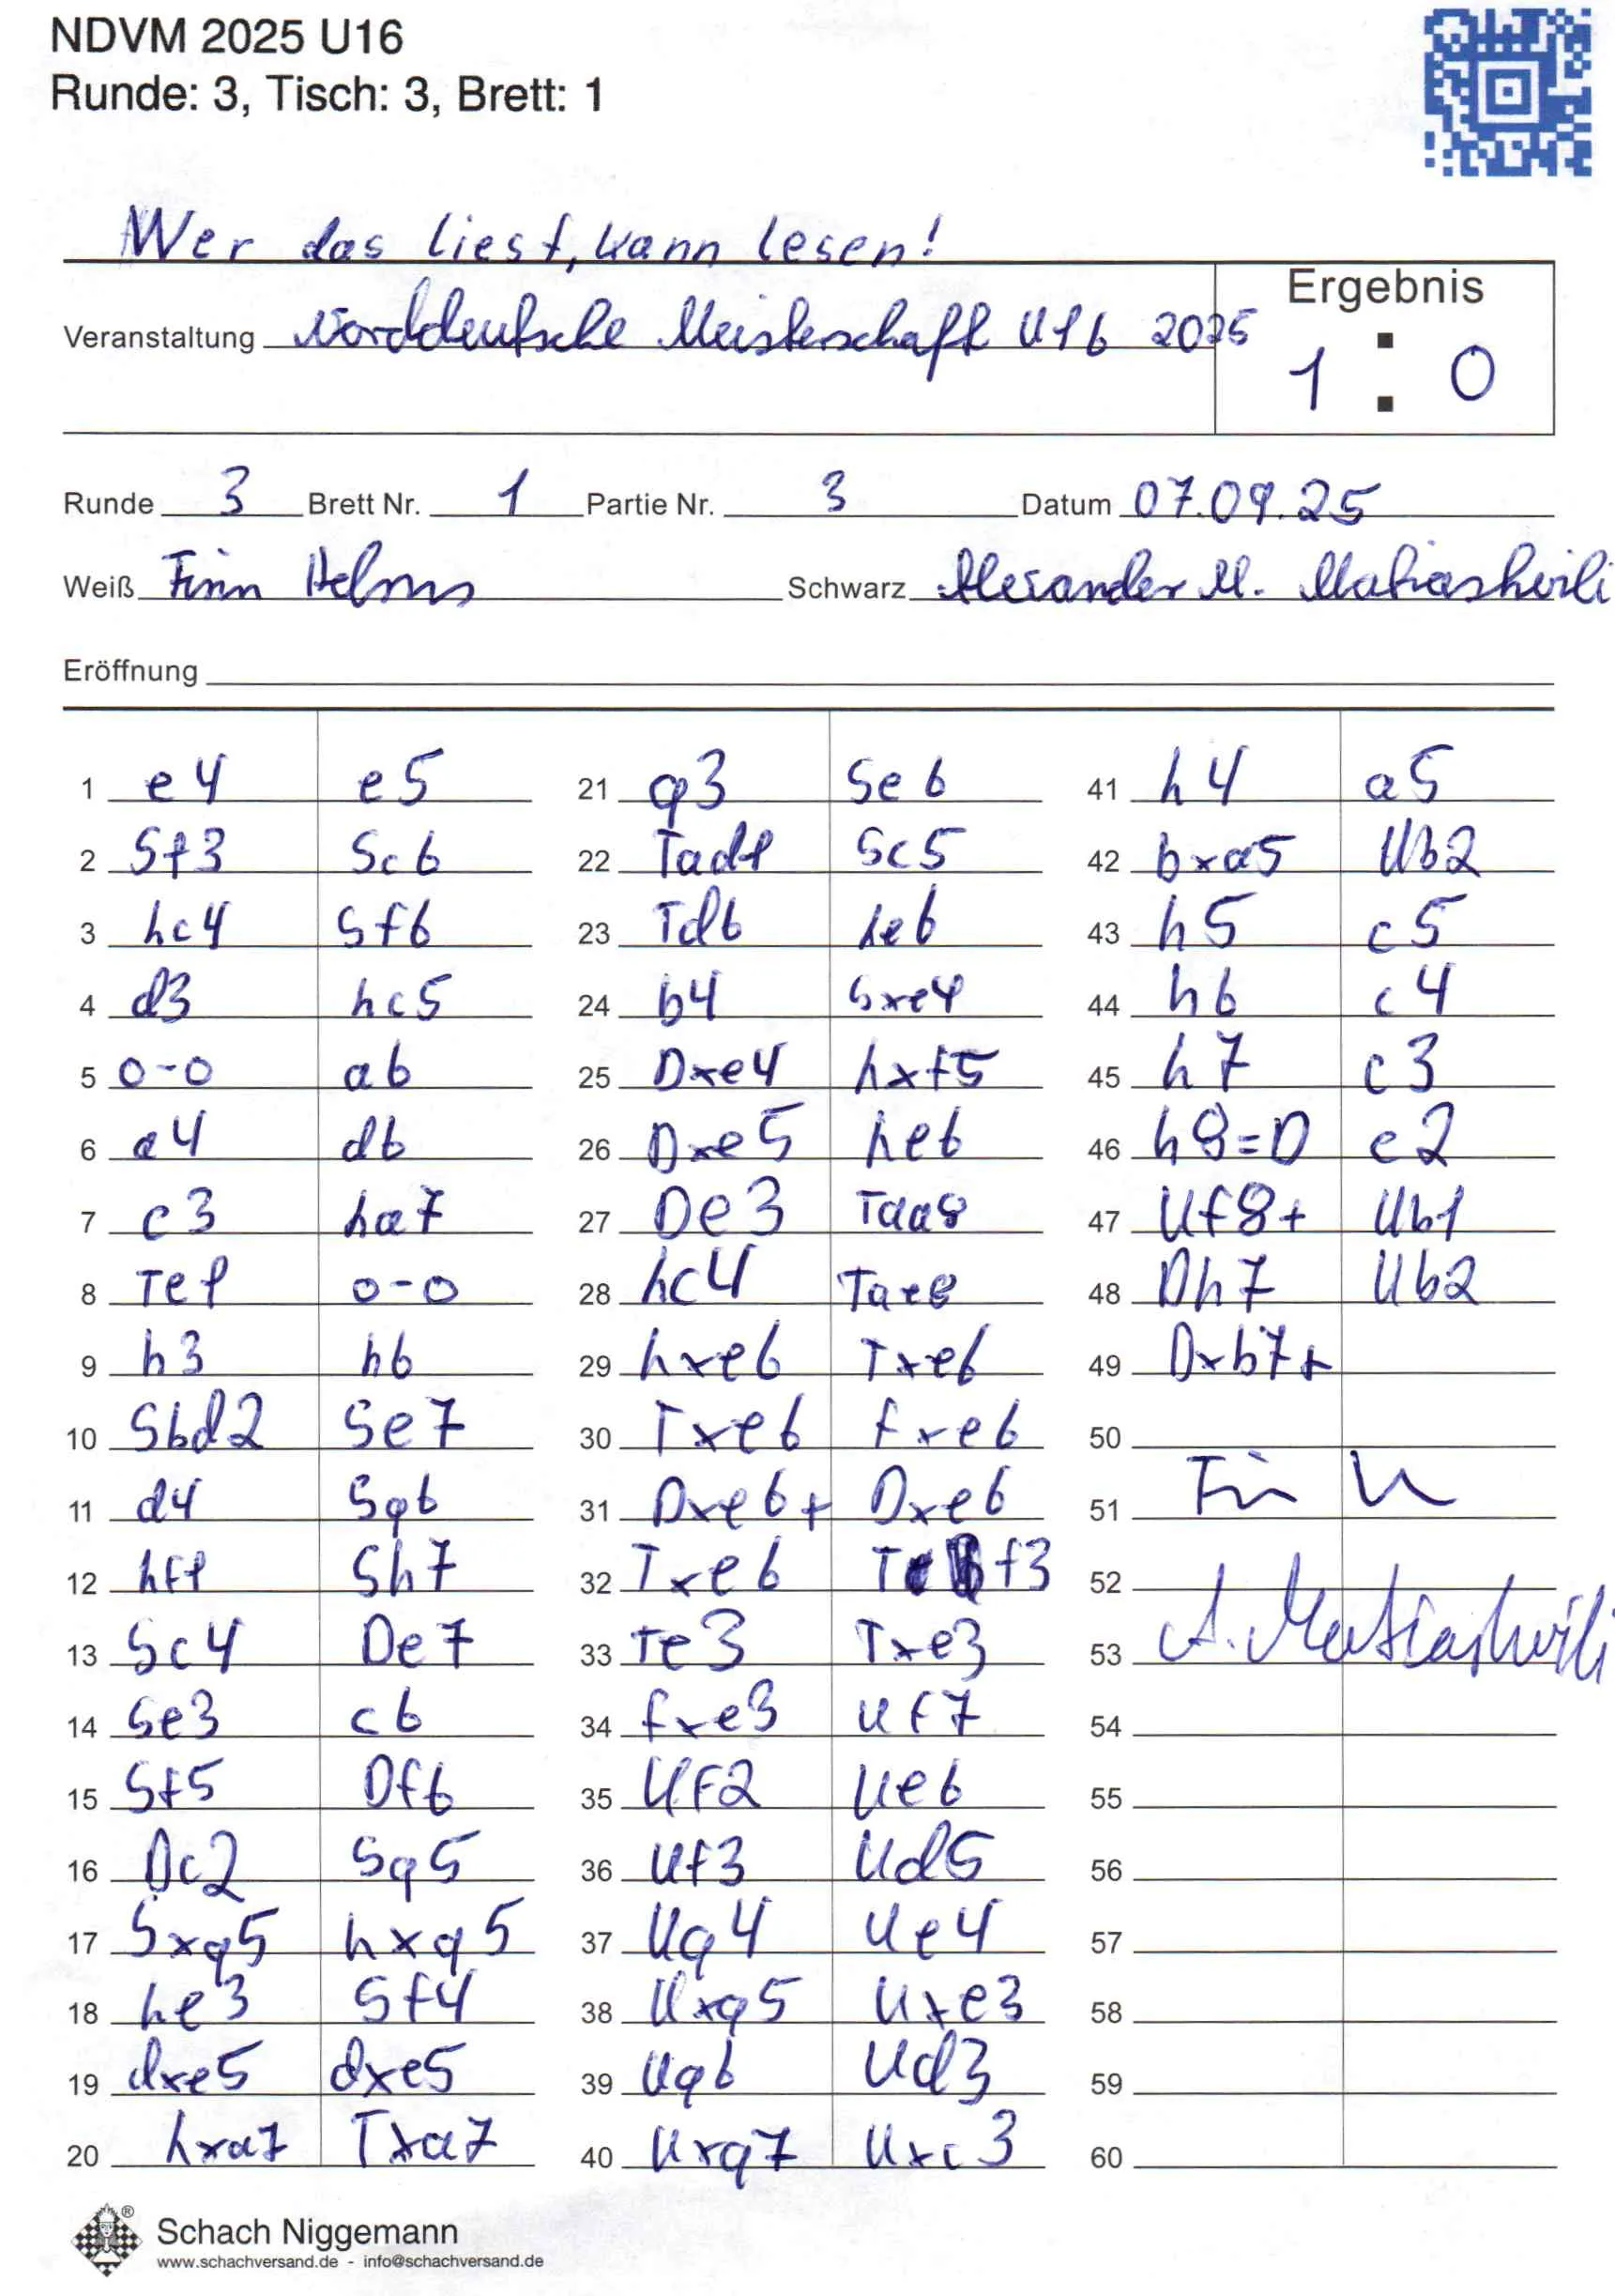 NDVM 2025 U16
Runde: 3, Tisch: 3, Brett: 1
Wer das liest, kann lesen!
Ergebnis
Veranstaltung Norddeutsche Meisterschaft U16 2025
1 : 0
Runde 3 Brett Nr. 1 Partie Nr. 3 Datum 07.09.25
Weiß Finn Helms Schwarz Alexander M. Matiashvili
Eröffnung
1 e4 e5 21 g3 Se6 41 h4 a5
2 Sf3 Sc6 22 Tad1 Sc5 42 bxa5 Kb2
3 Lc4 Sf6 23 Td6 Le6 43 h5 c5
4 d3 Lc5 24 b4 Sxe4 44 h6 c4
5 0-0 a6 25 Dxe4 Lxf5 45 h7 c3
6 a4 d6 26 Dxe5 Le6 46 h8=D c2
7 c3 La7 27 De3 Taa8 47 Kf8+ Kb1
8 Te1 0-0 28 Lc4 Tae8 48 Dh7 Kb2
9 h3 h6 29 Lxe6 Txe6 49 Dxb7+
10 Sbd2 Se7 30 Txe6 fxe6 50
11 d4 Sg6 31 Dxe6+ Dxe6 51 Fin H
12 Lf1 Sh7 32 Txe6 Tf3 52
13 Sc4 De7 33 Te3 Txe3 53 A. Matiashvili
14 Se3 c6 34 fxe3 Kf7 54
15 Sf5 Df6 35 Kf2 Ke6 55
16 Dc2 Sg5 36 Kf3 Kd5 56
17 Sxg5 hxg5 37 Kg4 Ke4 57
18 Le3 Sf4 38 Kxg5 Kxe3 58
19 dxe5 dxe5 39 Kg6 Kd3 59
20 Lxa7 Txa7 40 Kxg7 Kxc3 60
®
Schach Niggemann
www.schachversand.de - info@schachversand.de